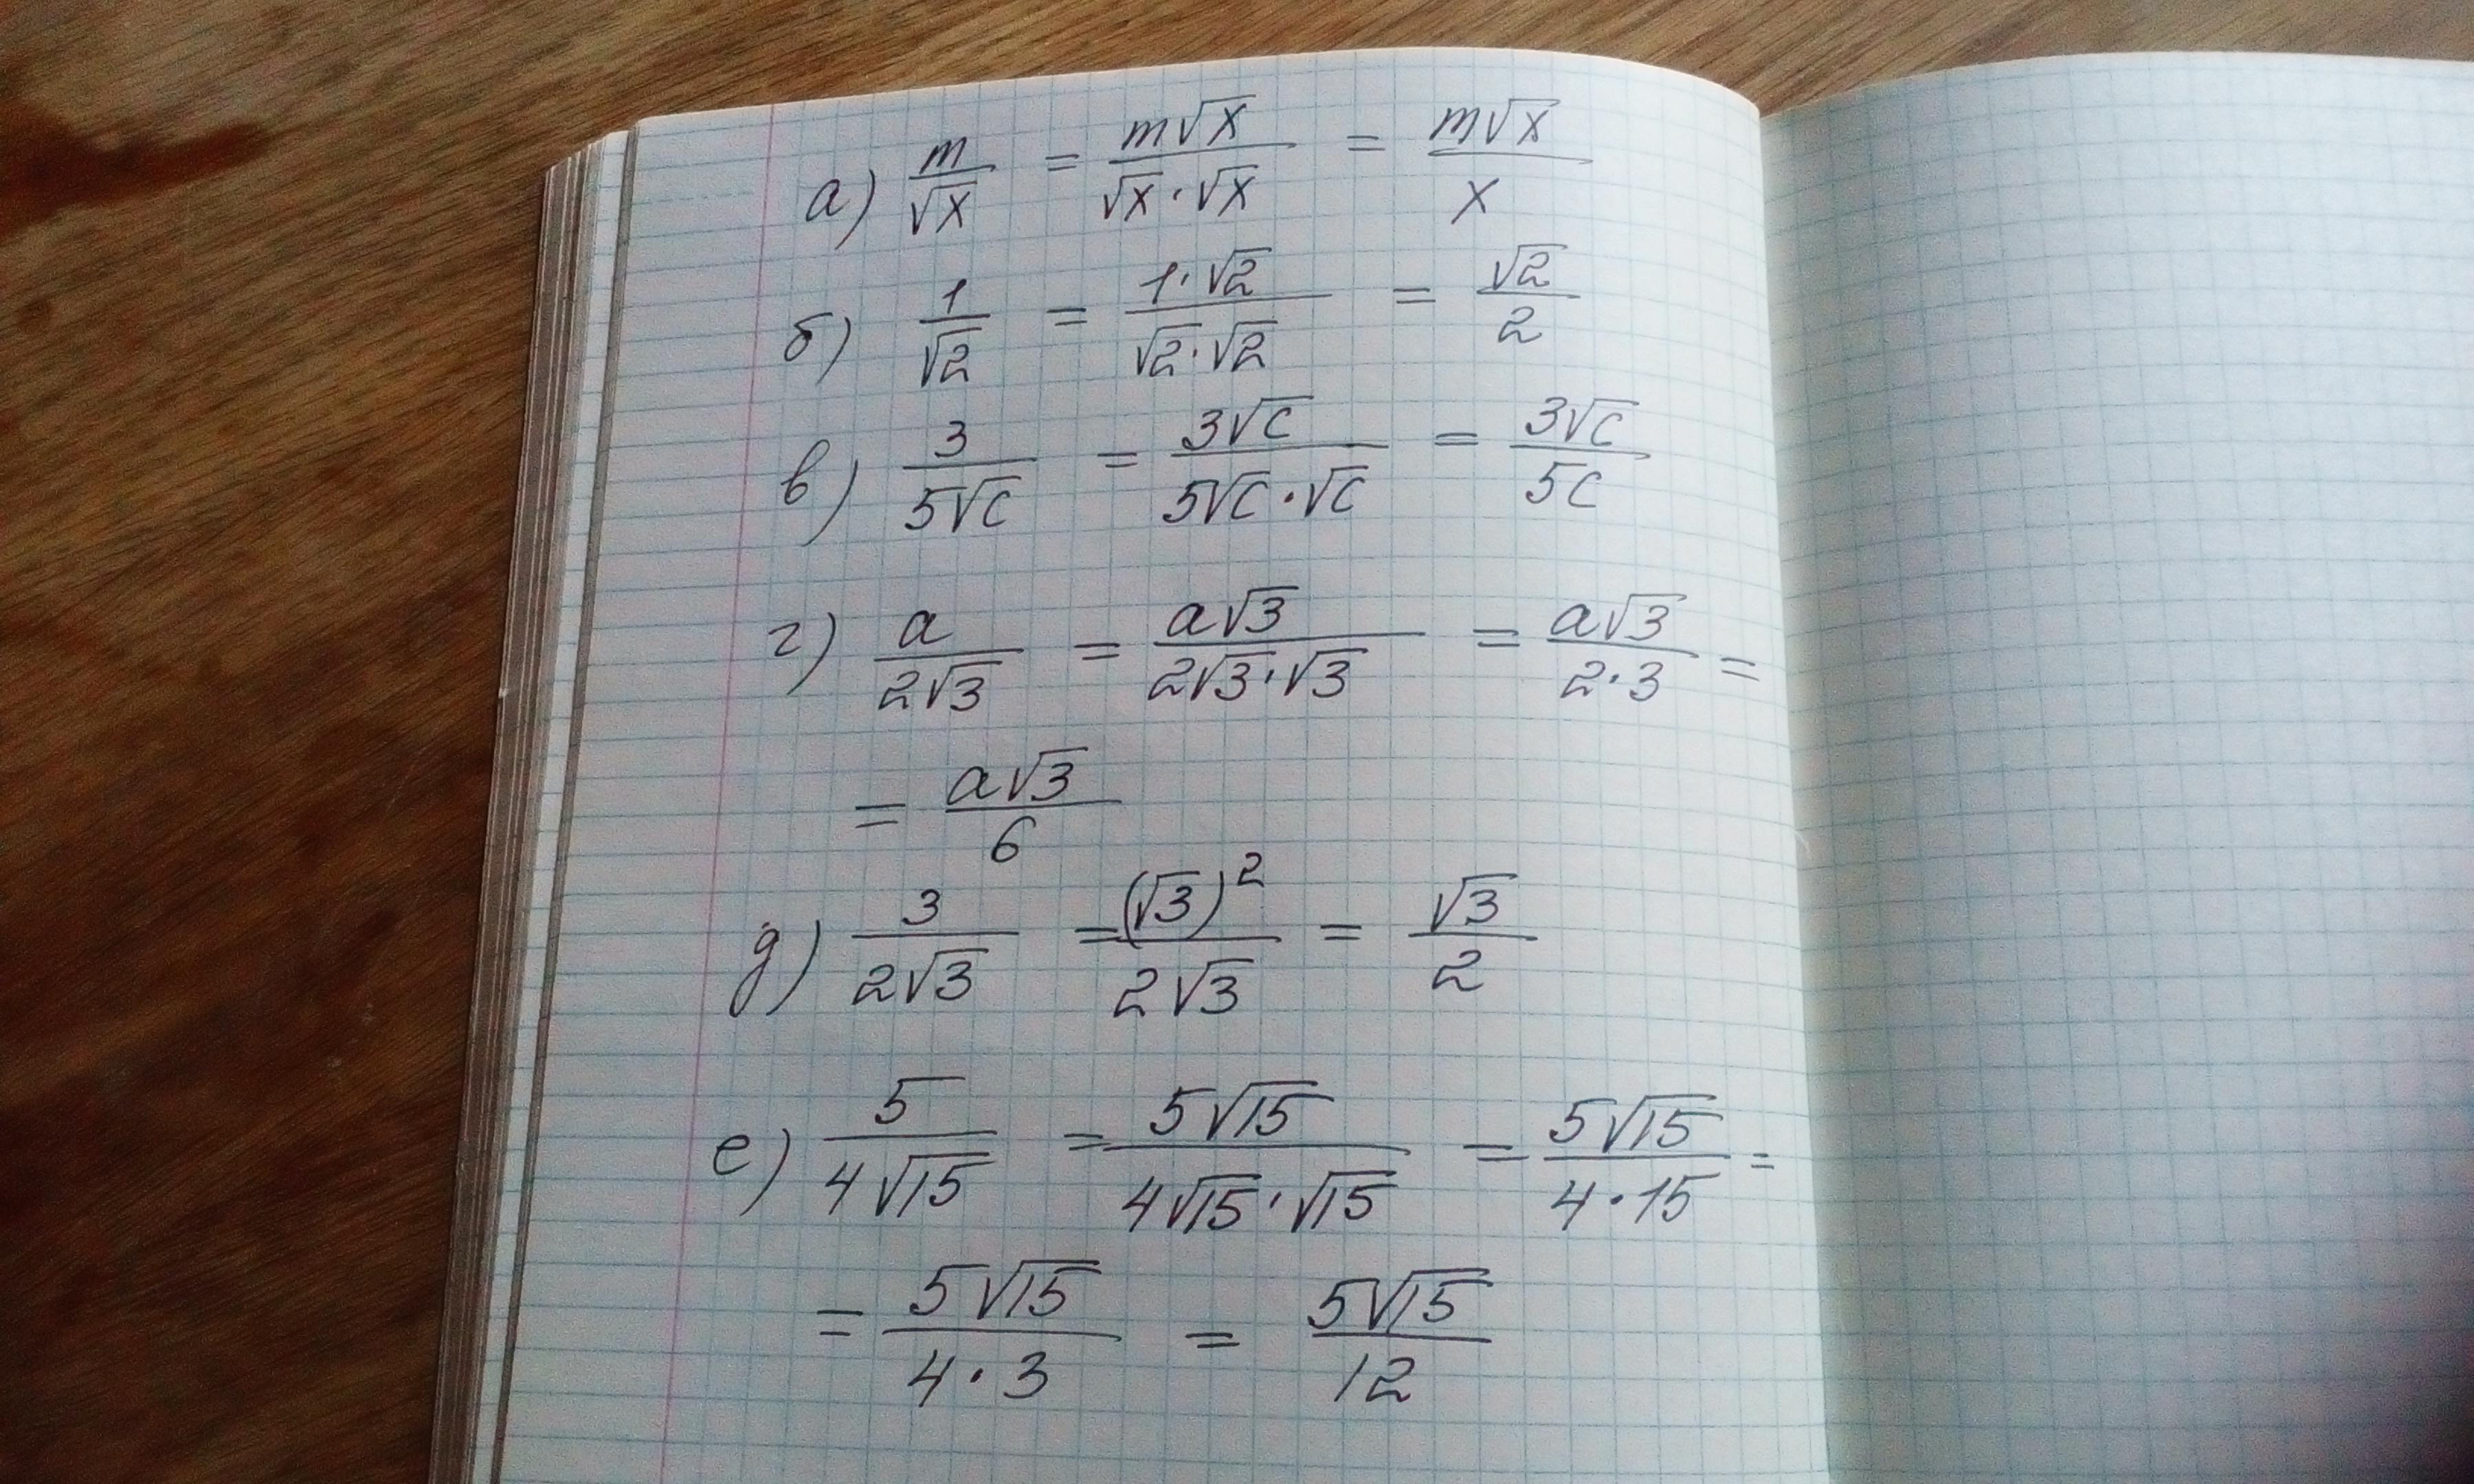 а) m/√x = m√x/(√x·√x) = m√x/x
б) 1/√2 = 1·√2/(√2·√2) = √2/2
в) 3/(5√c) = 3√c/(5√c·√c) = 3√c/(5c)
г) a/(2√3) = a√3/(2√3·√3) = a√3/(2·3) =
= a√3/6
д) 3/(2√3) = (√3)²/(2√3) = √3/2
е) 5/(4√15) = 5√15/(4√15·√15) = 5√15/(4·15) =
= 5√15/(4·3) = 5√15/12